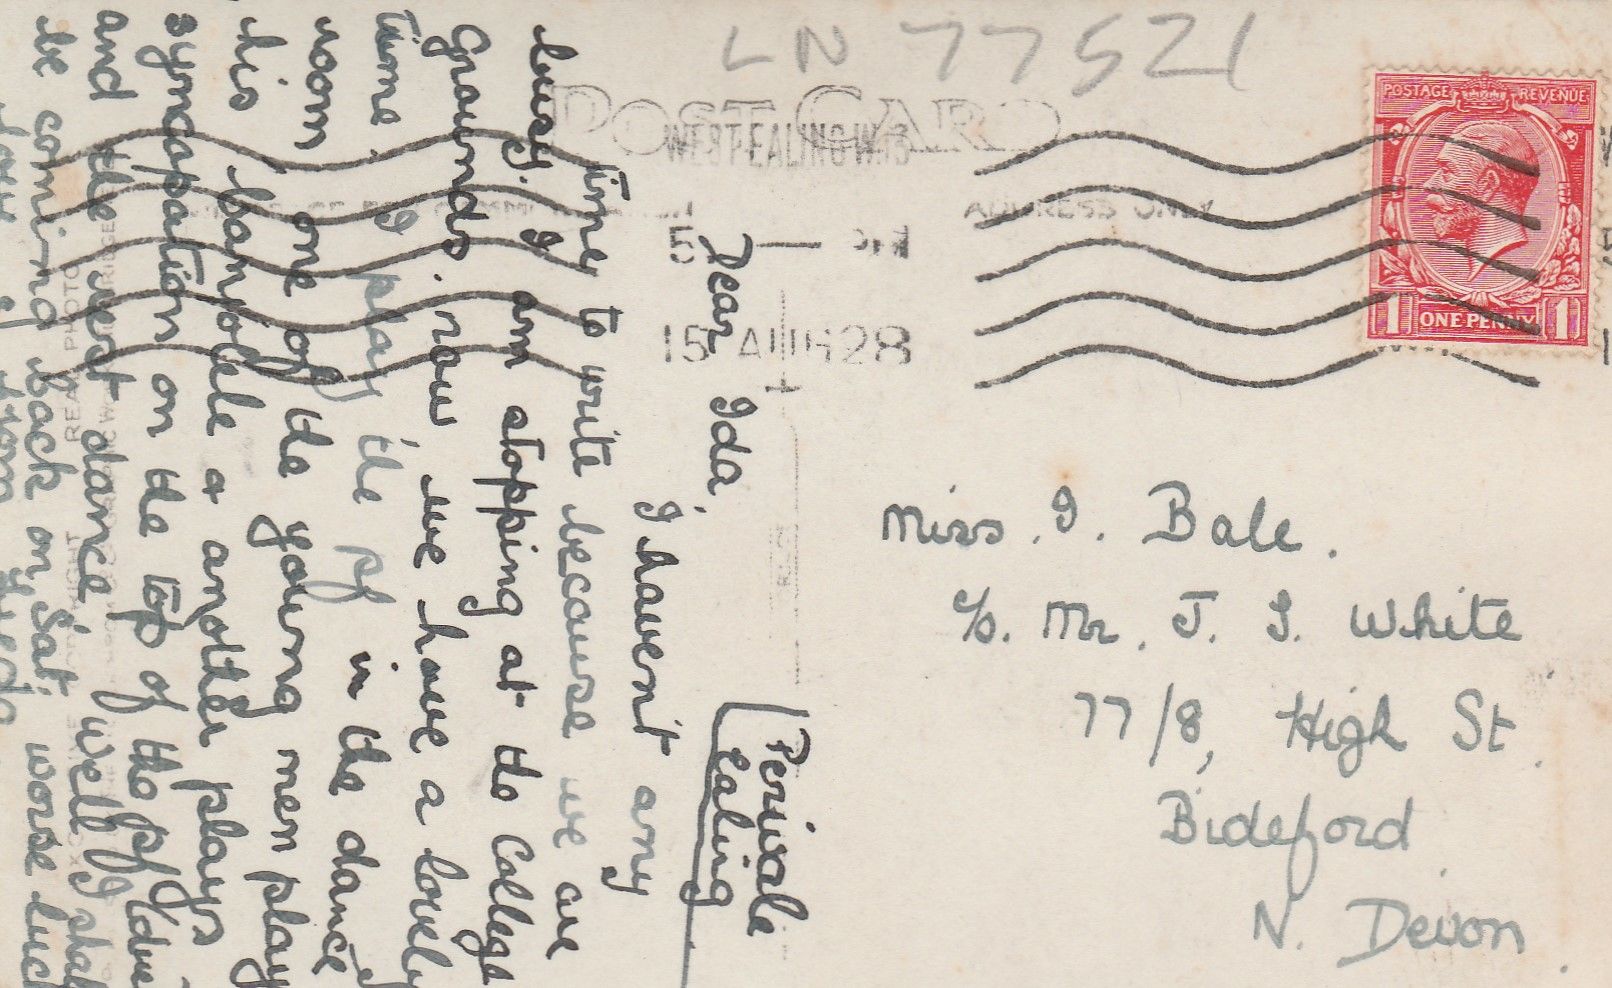 LN 77521
POST CARD
WEST EALING W.13
5 — PM
15 AUG 28
ADDRESS ONLY
POSTAGE REVENUE
1 ONE PENNY 1
Miss. I. Bale.
c/o. Mr. J. S. White
77/8, High St
Bideford
N. Devon.
Perivale
Ealing
Dear Ida,
I haven't any
time to write because we are
busy. I am stopping at the College
Grounds. now we have a lovely
time. I play the pf in the dance
room one of the young men plays
his banjolele & another plays
syncopation on the top of the pf
and the rest dance. Well I shall
be coming back on Sat. worse luck
REAL PHOTO